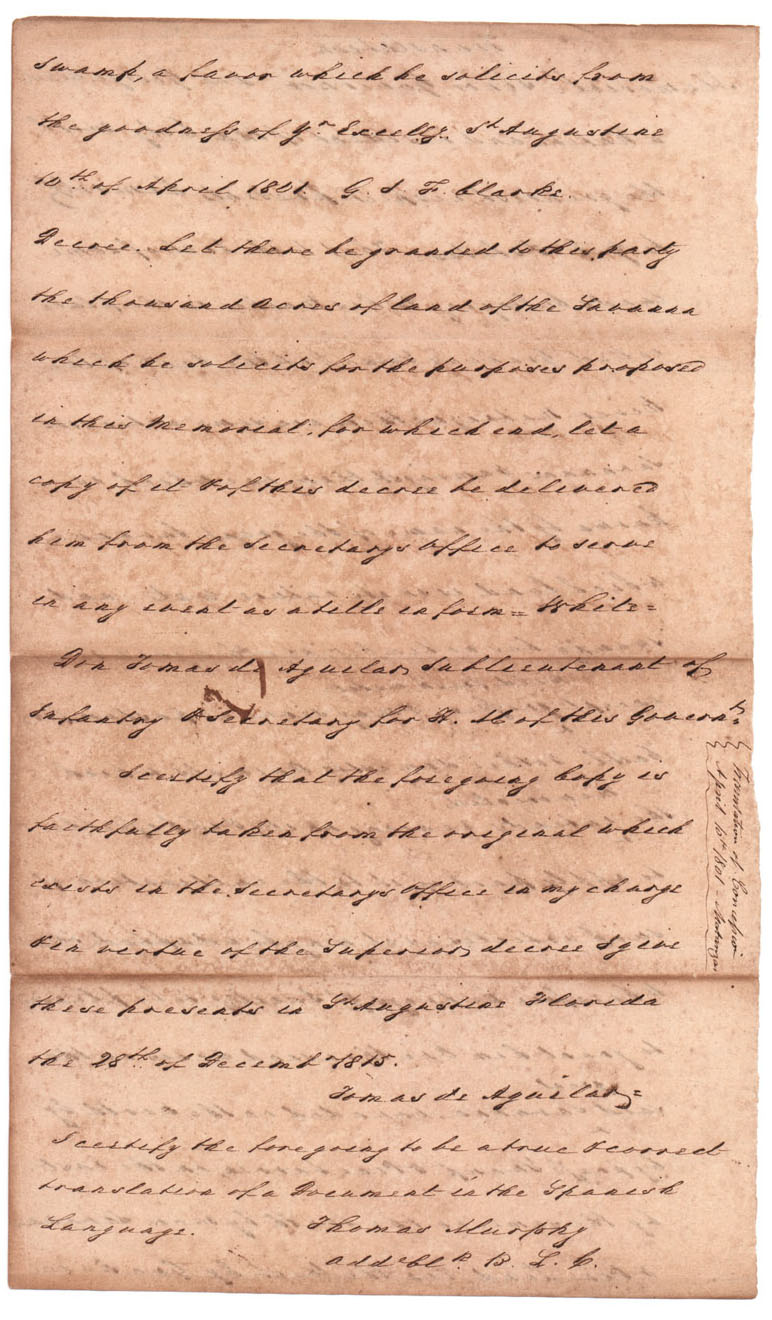 swamp, a favor which he solicits from
the goodness of Yr Excelcy. St Augustine
10th of April 1801. G. I. F. Clarke.
Decree. Let there be granted to this party
the thousand acres of land of the Savanna
which he solicits for the purposes proposed
in this Memorial, for which end, let a
copy of it & of this decree be delivered
him from the Secretarys Office to serve
in any event as a title in form = White =
Don Tomas de Aguilar, Sublieutenant of
Infantry & Secretary for H. M. of this Governt.
I certify that the foregoing Copy is
faithfully taken from the original which
exists in the Secretarys Office in my charge
& in virtue of the Superior decree I give
these presents in St Augustine Florida
the 28th of Decembr 1815.
Tomas de Aguilar =
I certify the foregoing to be a true & correct
translation of a Document in the Spanish
Language. Thomas Murphy
B. L. C.
Translation of Concession
April 10th 1801 - Matanzas